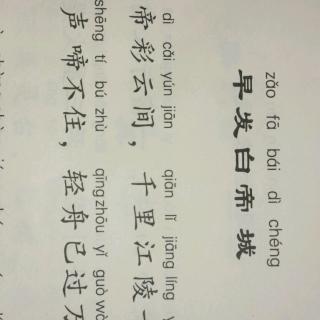 zǎo fā bái dì chéng
早发白帝城
dì cǎi yún jiān qiān lǐ jiāng líng
帝彩云间，千里江陵
shēng tí bú zhù qīng zhōu yǐ guò
声啼不住，轻舟已过